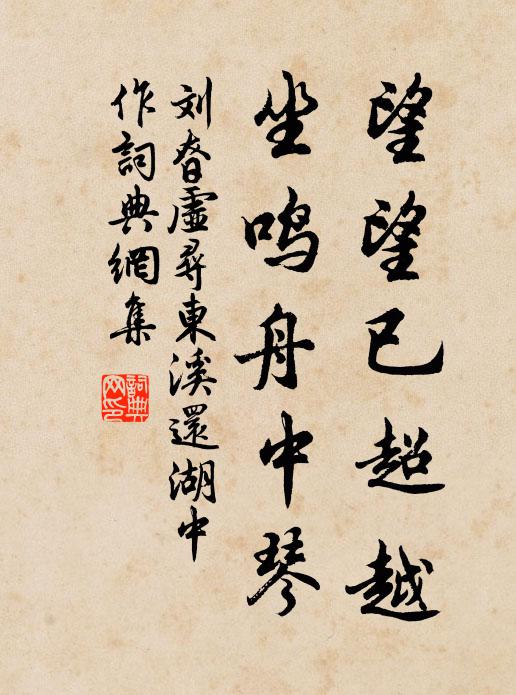 望望已超越
坐鸣舟中琴
刘昚虛尋東溪還湖中
作詞典網集
詞典网印